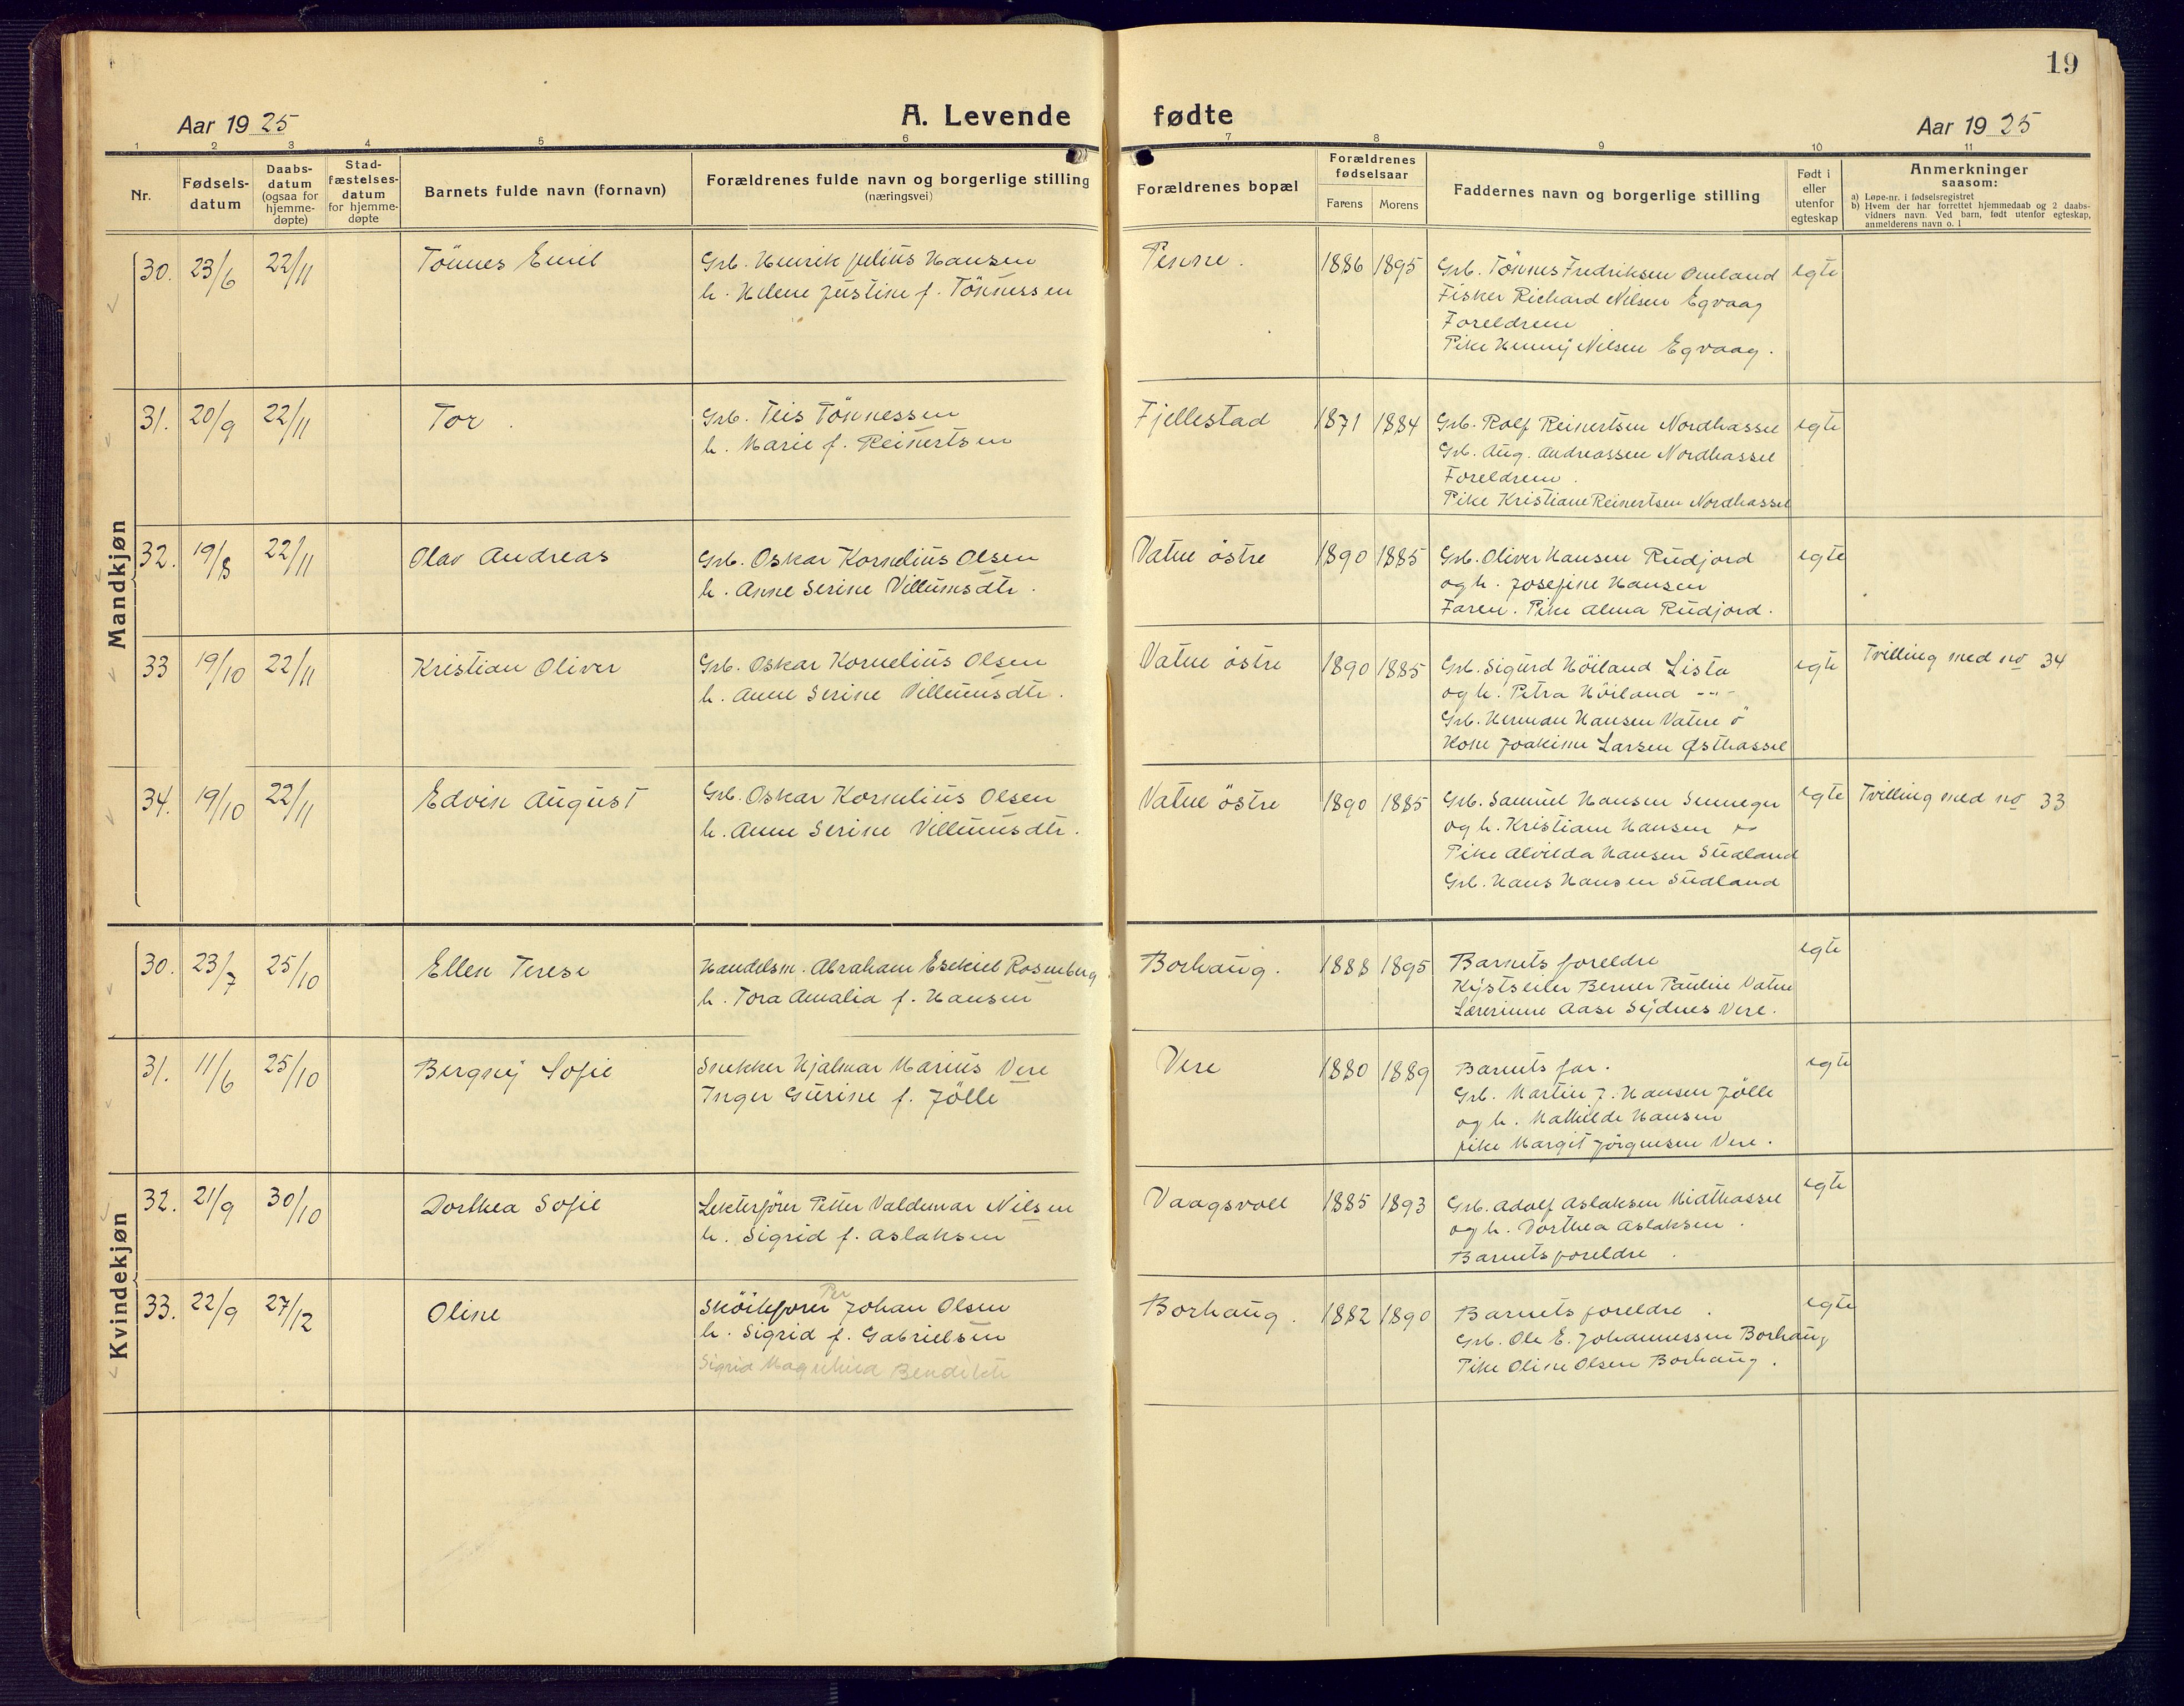 19
Aar 1925
A. Levende fødte
Aar 1925
1 2 3 4 5 6 7 8 9 10 11
Nr.
Fødsels-
datum
Daabs-
datum
(ogsaa for
hjemme-
døpte)
Stad-
fæstelses-
datum
for hjemme-
døpte
Barnets fulde navn (fornavn)
Forældrenes fulde navn og borgerlige stilling
(næringsvei)
Forældrenes bopæl
Forældrenes
fødselsaar
Farens Morens
Faddernes navn og borgerlige stilling
Født i
eller
utenfor
egteskap
Anmerkninger
saasom:
a) Løpe-nr. i fødselsregistret
b) Hvem der har forrettet hjemmedaab og 2 daabs-
vidners navn. Ved barn, født utenfor egteskap,
anmelderens navn o. l
Mandkjøn
30. 23/6 22/11 Tönnes Emil
Grb. Henrik Julius Hansen
h. Helene Justine f. Tönnessen
Penne. 1886 1895
Grb. Tönnes Fredriksen Omland
Fisker Richard Nilsen Egvaag
Foreldrene
Pike Henny Nilsen Egvaag.
egte
31. 20/9 22/11 Tor.
Grb. Teis Tönnessen
h. Marie f. Reinertsen
Fjellestad 1871 1884
Grb. Rolf Reinertsen Nordhassel
Grb. Aug. Andreassen Nordhassel
Foreldrene.
Pike Kristiane Reinertsen Nordhassel
egte
32. 19/8 22/11 Olav Andreas
Grb. Oskar Kornelius Olsen
h. Anne Serine Villumsdtr.
Vatne östre 1890 1885
Grb. Oliver Hansen Rudjord
og h. Josefine Hansen
Faren. Pike Alma Rudjord.
egte
33 19/10 22/11 Kristian Oliver
Grb. Oskar Kornelius Olsen
h. Anne Serine Villumsdtr.
Vatne östre 1890 1885
Grb. Sigurd Höiland Lista
og h. Petra Höiland -"-
Grb. Herman Hansen Vatne ö
Kone Joakime Larsen Østhassel
egte
Tvilling med no 34
34. 19/10 22/11 Edvin August
Grb. Oskar Kornelius Olsen
h. Anne Serine Villumsdtr.
Vatne östre 1890 1885
Grb. Samuel Hansen
og h. Kristiane Hansen
Pike Alvilda Hansen Sudland
Grb. Hans Hansen Sudland
egte
Tvilling med no 33
Kvindekjøn
30. 23/7 25/10 Ellen Terese
Handelsm. Abraham Esekiel Rosenberg
h. Tora Amalia f. Hansen
Borhaug. 1888 1895
Barnets foreldre
Berner Pauline Vatne
Lærerinne Aase Sydnes Vere.
egte
31. 11/6 25/10 Bergny Sofie
Snekker Hjalmar Marius Vere
Inger Gurine f. Jölle
Vere 1880 1889
Barnets far.
Grb. Martin J. Hansen Jölle
og h. Mathilde Hansen
pike Margit Jörgensen Vere.
egte
32. 21/9 30/10 Dorthea Sofie
Lekterförer Petter Valdemar Nilsen
h. Sigrid f. Aslaksen
Vaagsvoll 1885 1893
Grb. Adolf Aslaksen Midthassel
og h. Dorthea Aslaksen.
Barnets foreldre.
egte
33. 22/9 27/12 Oline
Per
Johan Olsen
h. Sigrid f. Gabrielsen
Sigrid Bendikte
Borhaug. 1882 1890
Barnets foreldre.
Grb. Ole E. Johannessen Borhaug
Pike Oline Olsen Borhaug.
egte